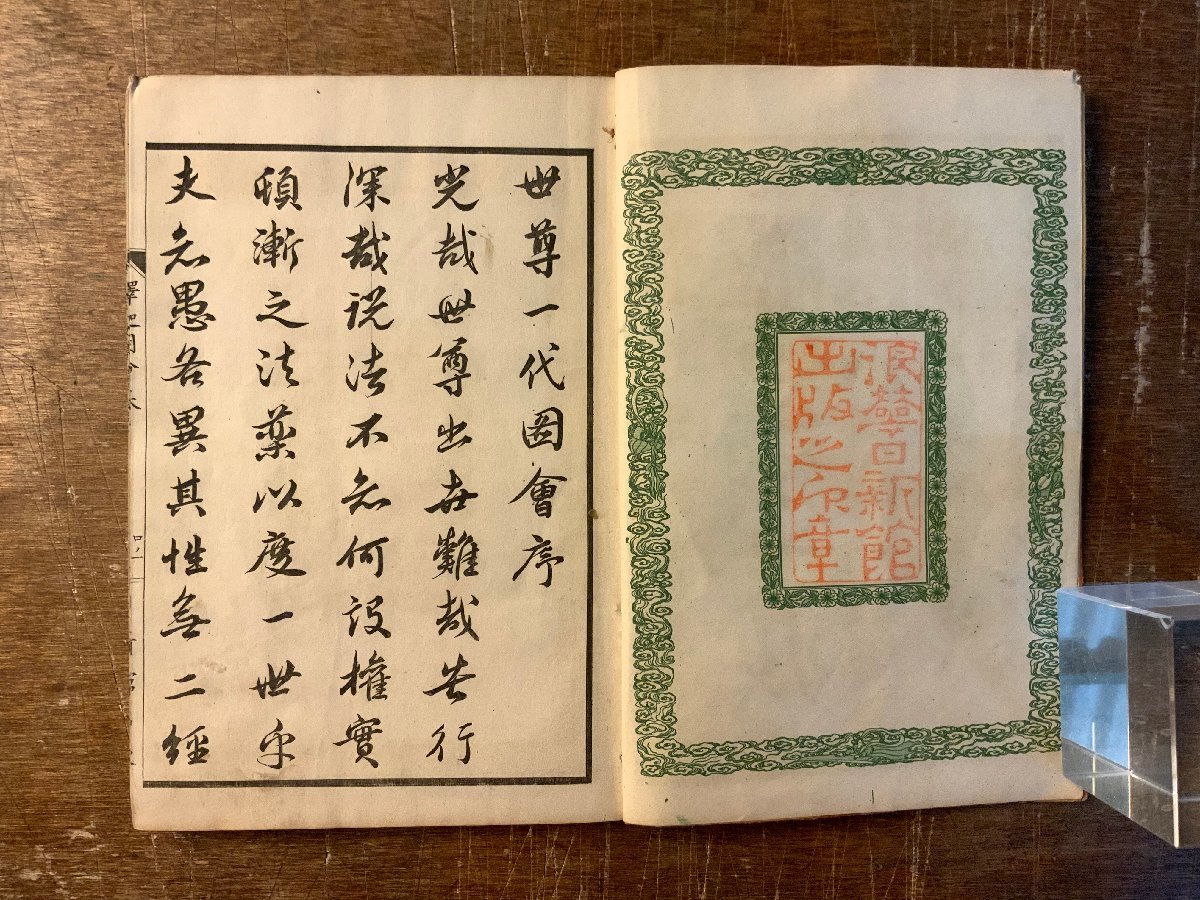 浪華日新館
出版之印章
世尊一代圖會序
光哉世尊出世難哉苦行
深哉説法不知何設權實
頓漸之法藥以度一世乎
夫知愚各異其性無二經
釋迦圖會